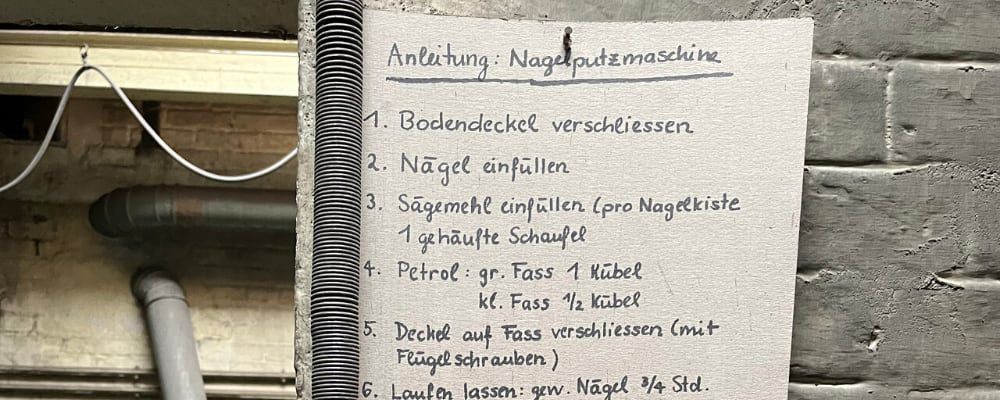 Anleitung: Nagelputzmaschine
1. Bodendeckel verschliessen
2. Nägel einfüllen
3. Sägemehl einfüllen (pro Nagelkiste
1 gehäufte Schaufel
4. Petrol: gr. Fass 1 Kübel
kl. Fass 1/2 Kübel
5. Deckel auf Fass verschliessen (mit
Flügelschrauben)
6. Laufen lassen: gew. Nägel 3/4 Std.